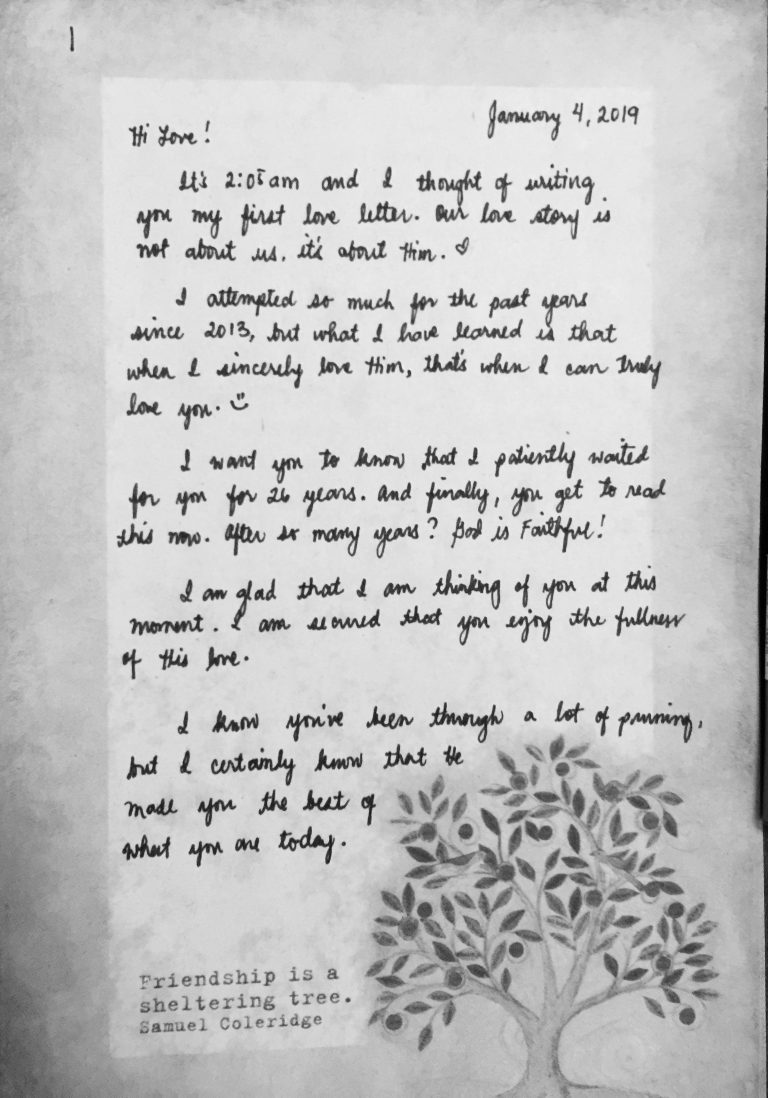 1
January 4, 2019
Hi Love!
It's 2:05 am and I thought of writing
you my first love letter. Our love story is
not about us, it's about Him. ♡
I attempted so much for the past years
since 2013, but what I have learned is that
when I sincerely love Him, that's when I can truly
love you. :)
I want you to know that I patiently waited
for you for 26 years. And finally, you get to read
this now. After so many years? God is Faithful!
I am glad that I am thinking of you at this
moment. I am secured that you enjoy the fullness
of His love.
I know you've been through a lot of pruning,
but I certainly know that He
made you the best of
what you are today.
Friendship is a
sheltering tree.
Samuel Coleridge